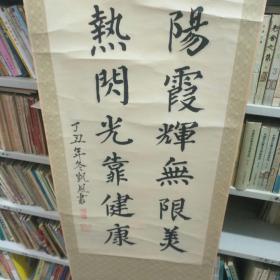 陽霞輝無限美
熱閃光靠健康
丁丑年冬凱風書